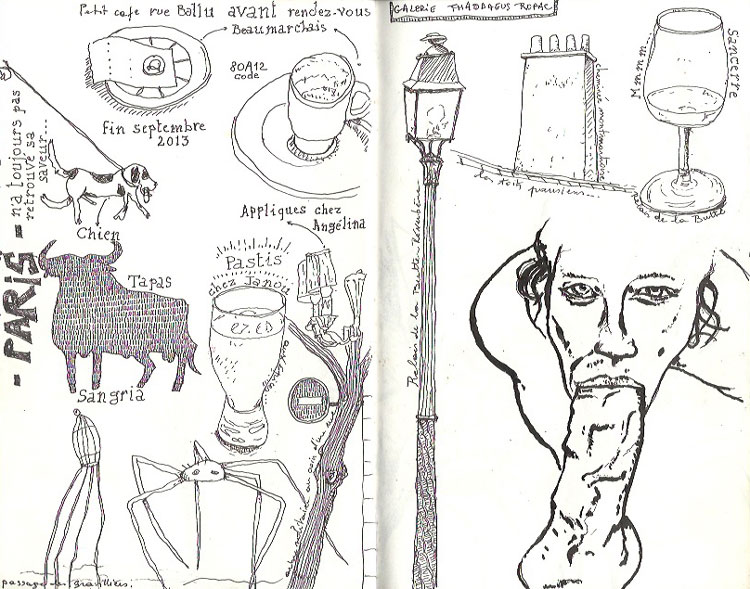 Petit cafe rue Ballu avant rendez-vous
Beaumarchais
80A12
code
Fin septembre
2013
- PARIS -
n'a toujours pas
retrouvé sa
saveur...
Chien
Appliques chez
Angélina
Tapas
Sangria
Pastis
chez Janou
passage des gravilliers.
GALERIE THADDAEUS ROPAC
cheminée montmartroise
les toits parisiens...
Mmmm...
Sancerre
Relais de la Butte